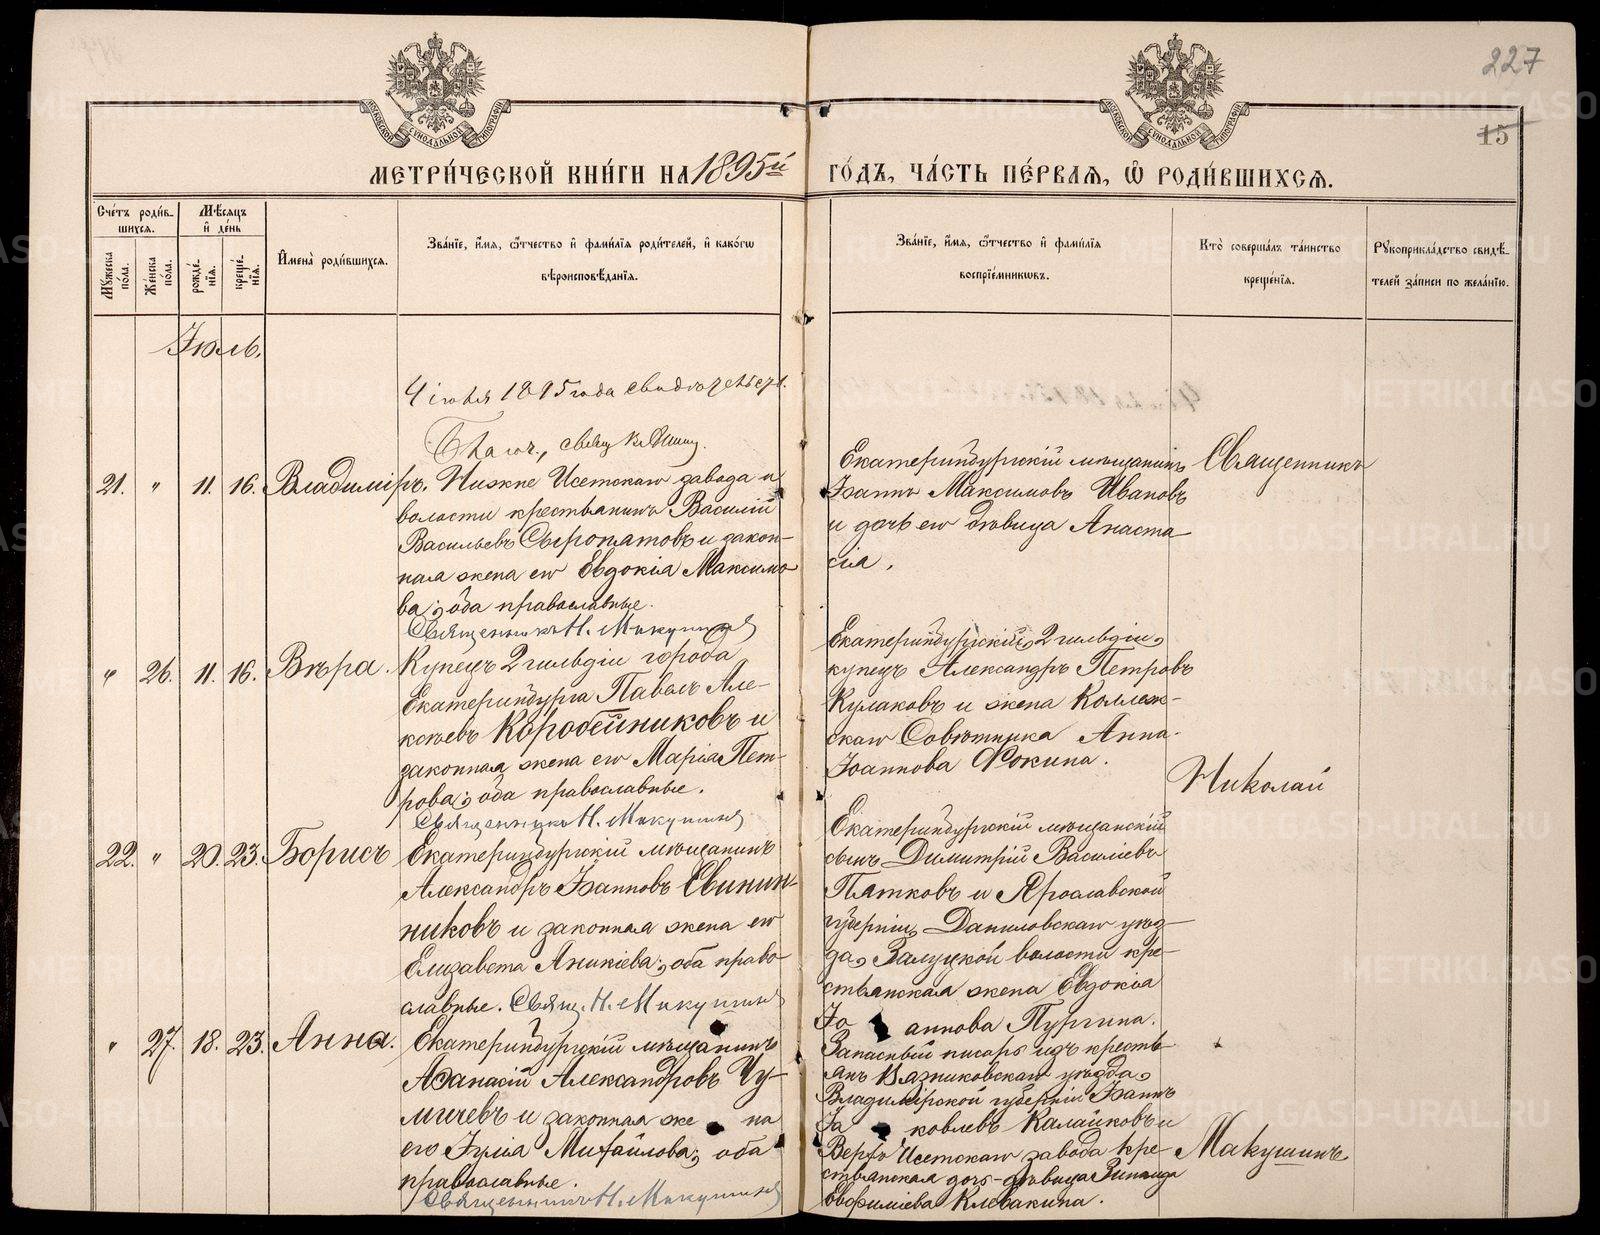 227
15
МОСКОВСКОЙ СѴНОДАЛЬНОЙ ТИПОГРАФІИ
МОСКОВСКОЙ СѴНОДАЛЬНОЙ ТИПОГРАФІИ
МЕТРИ́ЧЕСКОЙ КНИ́ГИ НА 1895й ГО́ДЪ, ЧА́СТЬ ПЕ́РВАѦ, Ѽ РОДИ́ВШИХСѦ.
Сче́тъ роди́вшихсѧ.
Мꙋ́жеска по́ла.
Же́нска по́ла.
Мѣ́сѧцъ и҆ де́нь
рожде́нїѧ.
креще́нїѧ.
И҆мена̀ роди́вшихсѧ.
Зва́нїе, и҆́мѧ, ѻ҆́тчество и҆ фами́лїѧ роди́телей, и҆ како́гѡ
вѣроисповѣ́данїѧ.
Зва́нїе, и҆́мѧ, ѻ҆́тчество и҆ фами́лїѧ
воспрїе́мникѡвъ.
Кто̀ соверша́лъ та́инство
креще́нїѧ.
Рꙋкоприкла́дство свидѣ́-
телей за́писи по жела́нїю.
Іюль.
4 іюля 1895 года
21. " 11. 16. Владиміръ.
Нижне Исетскаго завода и
волости крестьянинъ Василій
Васильевъ Сыропятовъ и закон-
ная жена его Евдокія Максимо
ва; оба православные.
Священникъ Н. Макушинъ
Екатеринбургскій мѣщанинъ
Іоаннъ Максимовъ Ивановъ
и дочь его дѣвица Анаста
сія.
Священникъ
" 26. 11. 16. Вѣра.
Купецъ 2 гильдіи города
Екатеринбурга Павелъ Але-
ксѣевъ Коробейниковъ и
законная жена его Марія Пет-
рова; оба православные.
Священникъ Н. Макушинъ
Екатеринбургскій 2 гильдіи
купецъ Александръ Петровъ
Кулаковъ и жена Коллеж-
скаго Совѣтника Анна
Іоаннова Фокина.
Николай
22. " 20. 23. Борисъ
Екатеринбургскій мѣщанинъ
Александръ Іоанновъ
никовъ и законная жена его
Елизавета Аникіева; оба право-
славные. Свящ. Н. Макушинъ
Екатеринбургскій мѣщанскій
сынъ Димитрій Василіевъ
Пятковъ и Ярославской
губерніи, Даниловскаго уѣз-
да, Залуцкой волости кре-
стьянская жена Евдокія
Іо аннова Пургина.
" 27. 18. 23. Анна.
Екатеринбургскій мѣщанинъ
Аѳанасій Александровъ Чу-
мичевъ и законная же на
его Іулія Михайлова; оба
православные.
Священникъ Н. Макушинъ
Запасный писарь изъ кресть-
янъ Вязниковскаго уѣзда,
Владимірской губерніи Іоаннъ
Іа ковлевъ Калайковъ и
Верхъ Исетскаго завода кре-
стьянская дочь-дѣвица Зинаида
Евфиміева Клевакина.
Макушинъ
METRIKI.GASO-URAL.RU